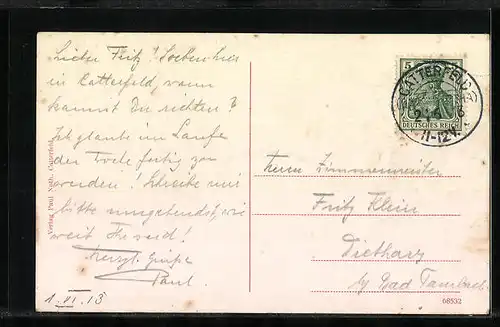 Lieber Fritz! Soeben hier
in Catterfeld, wann
kannst Du richten?
Ich glaube im Laufe
der Woche fertig zu
werden! Schreibe mir
bitte umgehendst, wie
weit Freund!
Herzl. Grüße
Paul
1.VI.13
Herrn Zimmermeister
Fritz Klein
Dietharz
b/ Bad Tambach
5
DEUTSCHES REICH
CATTERFELD
11-12V
Verlag Paul Noth, Catterfeld
08532